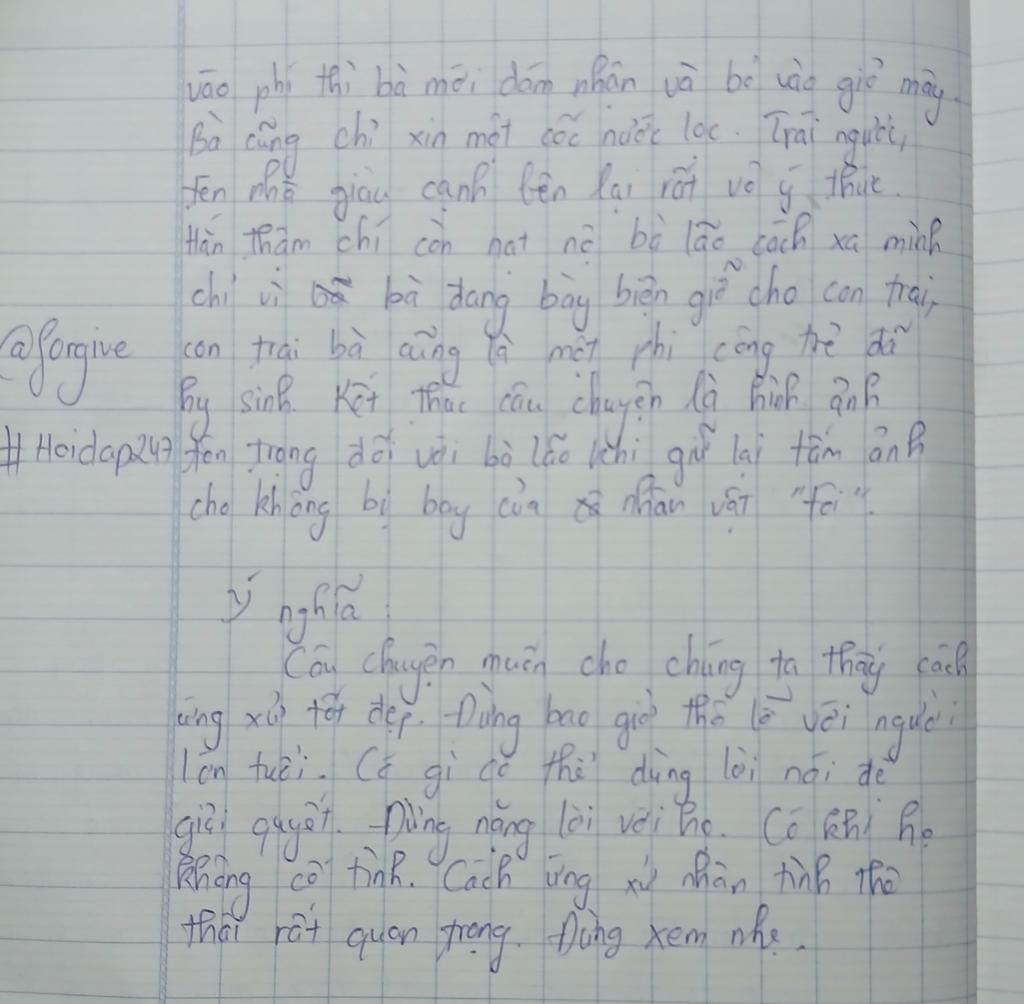 vào phí thì bà mới dám nhận và bỏ vào giỏ mây.
Bà cũng chỉ xin một cốc nước lọc. Trái ngược,
tên nhà giàu cạnh bên lại rất vô ý thức.
Hắn thậm chí còn nạt nộ bà lão cách xa mình
chỉ vì bà đang bày biện giỗ cho con trai,
con trai bà cũng là một phi công trẻ đã
@forgive
hy sinh. Kết thúc câu chuyện là hình ảnh
#Hoidap247 tôn trọng đối với bà lão khi giữ lại tấm ảnh
cho không bị bay của nhân vật "tôi".
Ý nghĩa:
Câu chuyện muốn cho chúng ta thấy cách
ứng xử tốt đẹp. Đừng bao giờ thô lỗ với người
lớn tuổi. Có gì có thể dùng lời nói để
giải quyết. Đừng nặng lời với họ. Có khi họ
không cố tình. Cách ứng xử nhân tình thế
thái rất quan trọng. Đừng xem nhẹ.